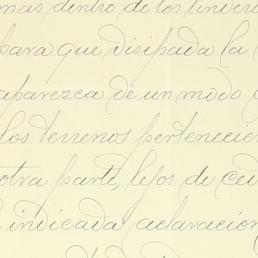 mas dentro de los lindero
para que disipada la
aparezca de un modo
los terrenos pertenecien
otra parte, lejos de ced
indicada aclaracion